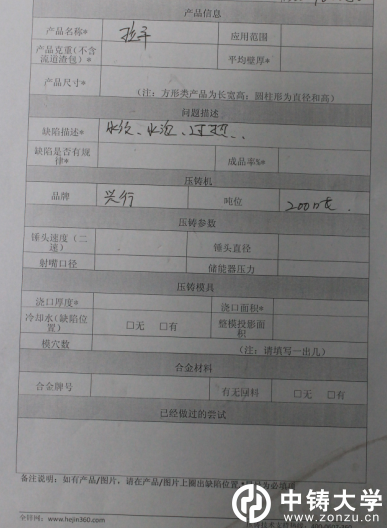 产品信息
产品名称* 拉手 应用范围
产品克重(不含流道渣包)* 平均壁厚*
产品尺寸*
(注：方形类产品为长宽高；圆柱形为直径和高)
问题描述
缺陷描述* 水纹、水泡、过热、
缺陷是否有规律* 成品率%*
压铸机
品牌 兴行 吨位 200吨
压铸参数
锤头速度(二速) 锤头直径
射嘴口径 储能器压力
压铸模具
浇口厚度* 浇口面积*
冷却水(缺陷位置) □无 □有 整模投影面积
模穴数 (注：请填写一出几)
合金材料
合金牌号 有无回料 □无 □有
已经做过的尝试
备注说明：如有产品/图片，请在产品/图片上圈出缺陷位置
www.hejin360.com
中铸大学
www.zonzu.cn